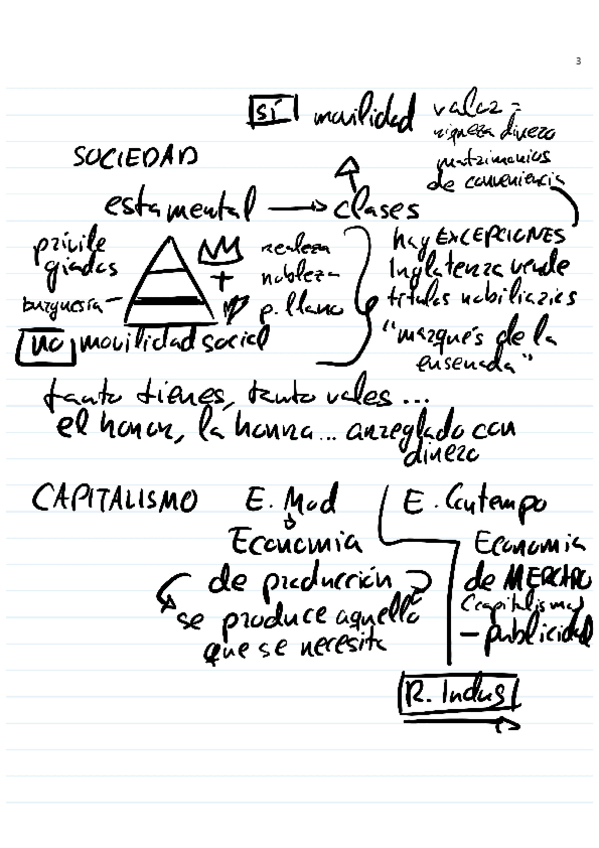 3
sí movilidad valor =
riqueza dinero
matrimonios
de conveniencia
SOCIEDAD
estamental → clases
privile
giados
burguesía
+
realeza
nobleza
p. llano
no movilidad social
hay EXCEPCIONES
Inglaterra vende
títulos nobiliarios
"marqués de la
ensenada"
tanto tienes, tanto vales ...
el honor, la honra ... arreglado con
dinero
CAPITALISMO E. Mod E. Contempo
Economía
de producción
se produce aquello
que se necesita
Economia
de MERCADO
(capitalismo)
- publicidad
R. Indus